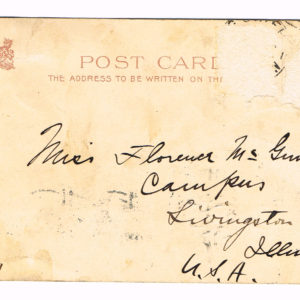 POST CARD
THE ADDRESS TO BE WRITTEN ON THE
Miss Florence Mc
Campus
Livingston
U.S.A.